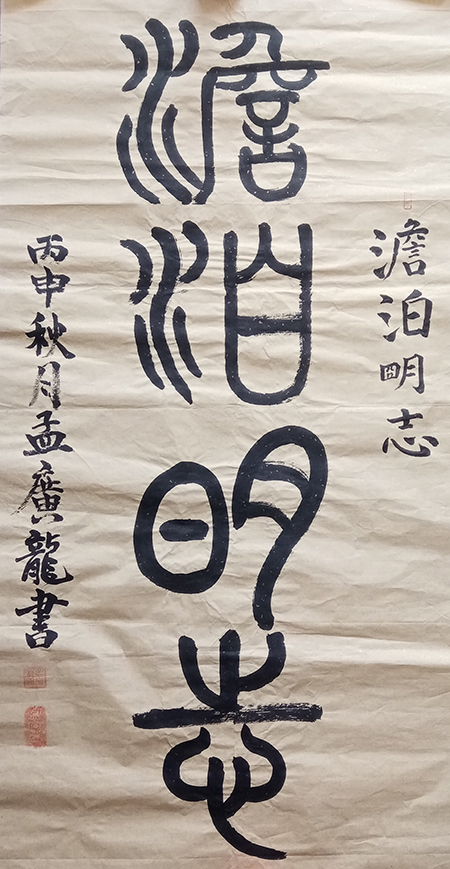 澹泊明志
澹泊明志
丙申秋月孟廣龍書